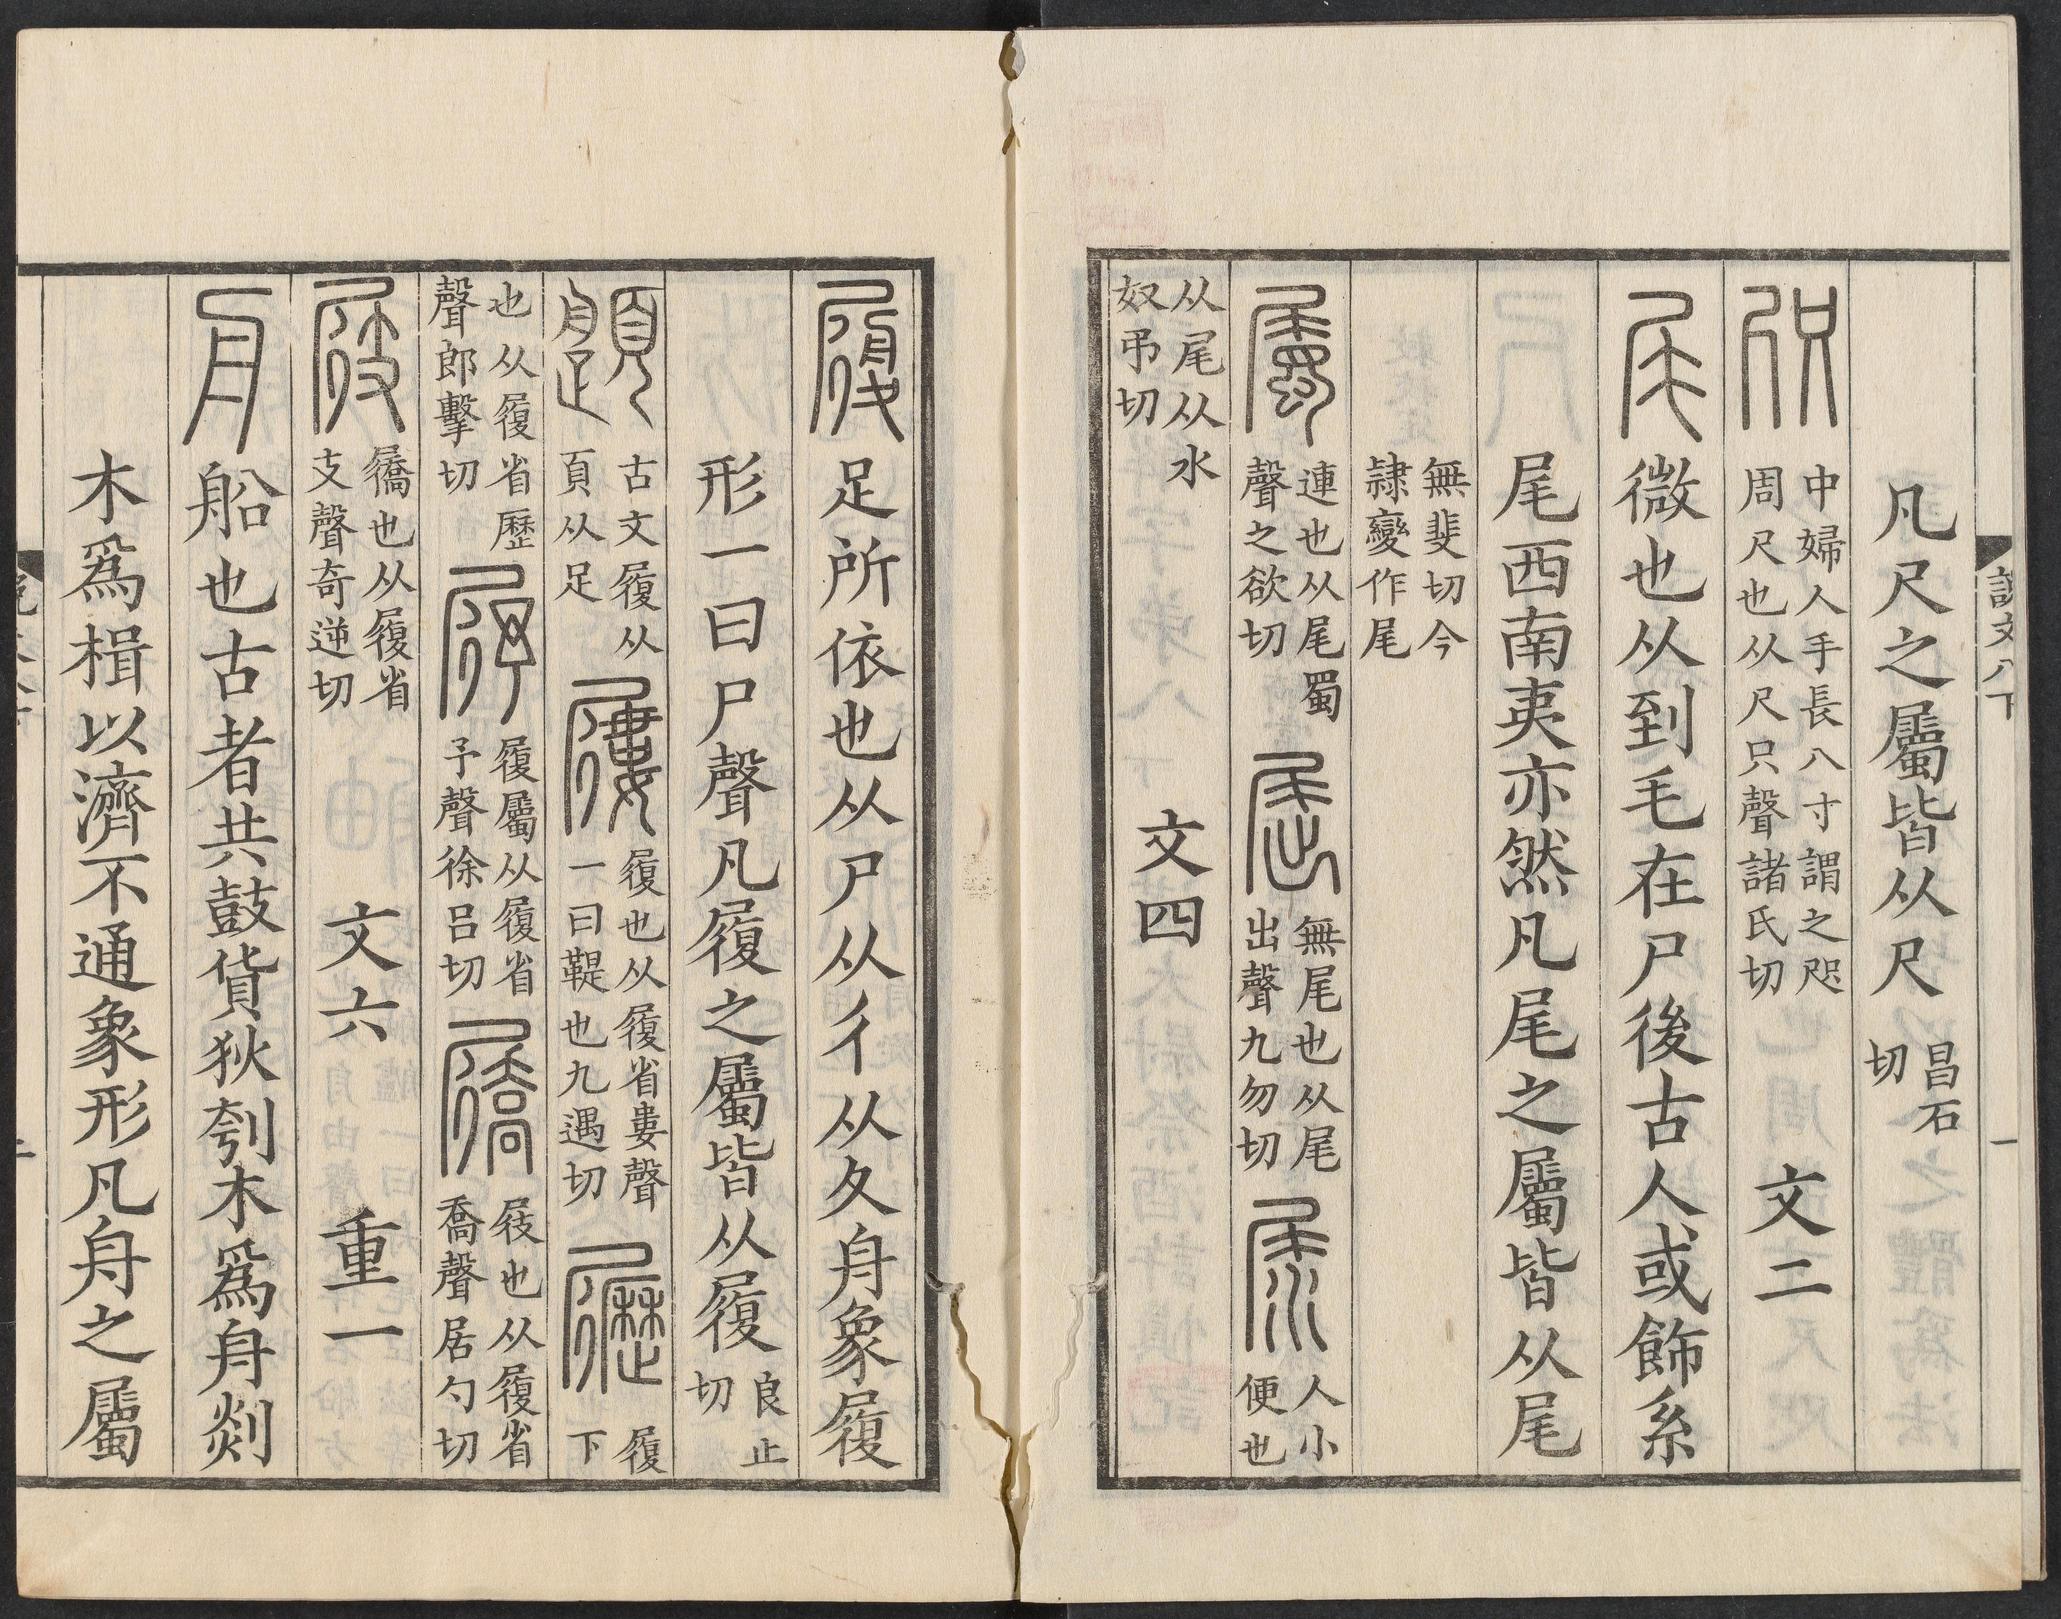 凡尺之屬皆从尺昌石切
咫中婦人手長八寸謂之咫周尺也从尺只聲諸氏切 文二
尾微也从到毛在尸後古人或飾系
尾西南夷亦然凡尾之屬皆从尾
無斐切今隷變作尾
屬連也从尾蜀聲之欲切 屈無尾也从尾出聲九勿切 尿人小便也
从尾从水奴弔切 文四
履足所依也从尸从彳从夂舟象履
形一曰尸聲凡履之屬皆从履良止切
𩕎古文履从頁从足 屨履也从履省婁聲一曰鞮也九遇切 屟履下
也从履省歷聲郎擊切 𡲣履屬从履省予聲徐呂切 屩屐也从履省喬聲居勺切
屐屩也从履省支聲奇逆切 文六 重一
舟船也古者共鼓貨狄刳木爲舟剡
木爲楫以濟不通象形凡舟之屬
說文八下
一